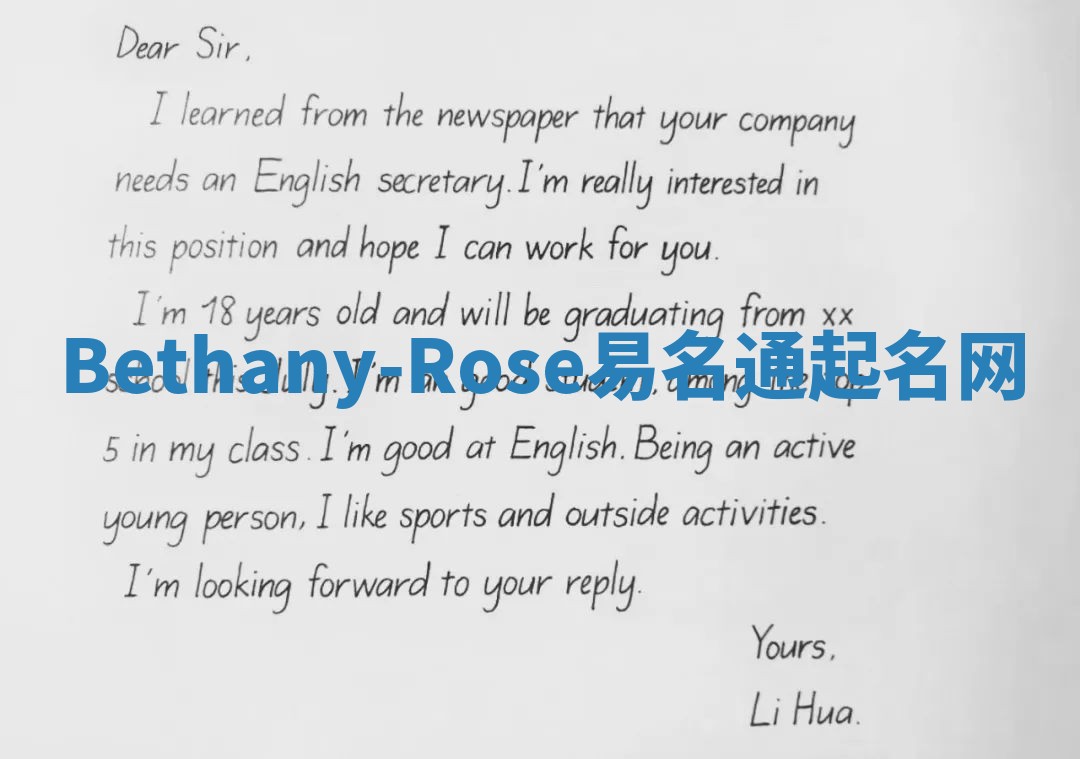 Dear Sir,
I learned from the newspaper that your company
needs an English secretary. I'm really interested in
this position and hope I can work for you.
I'm 18 years old and will be graduating from xx
Bethany-Rose易名通起名网
school this July. I'm a good student, among the top
5 in my class. I'm good at English. Being an active
young person, I like sports and outside activities.
I'm looking forward to your reply.
Yours,
Li Hua.